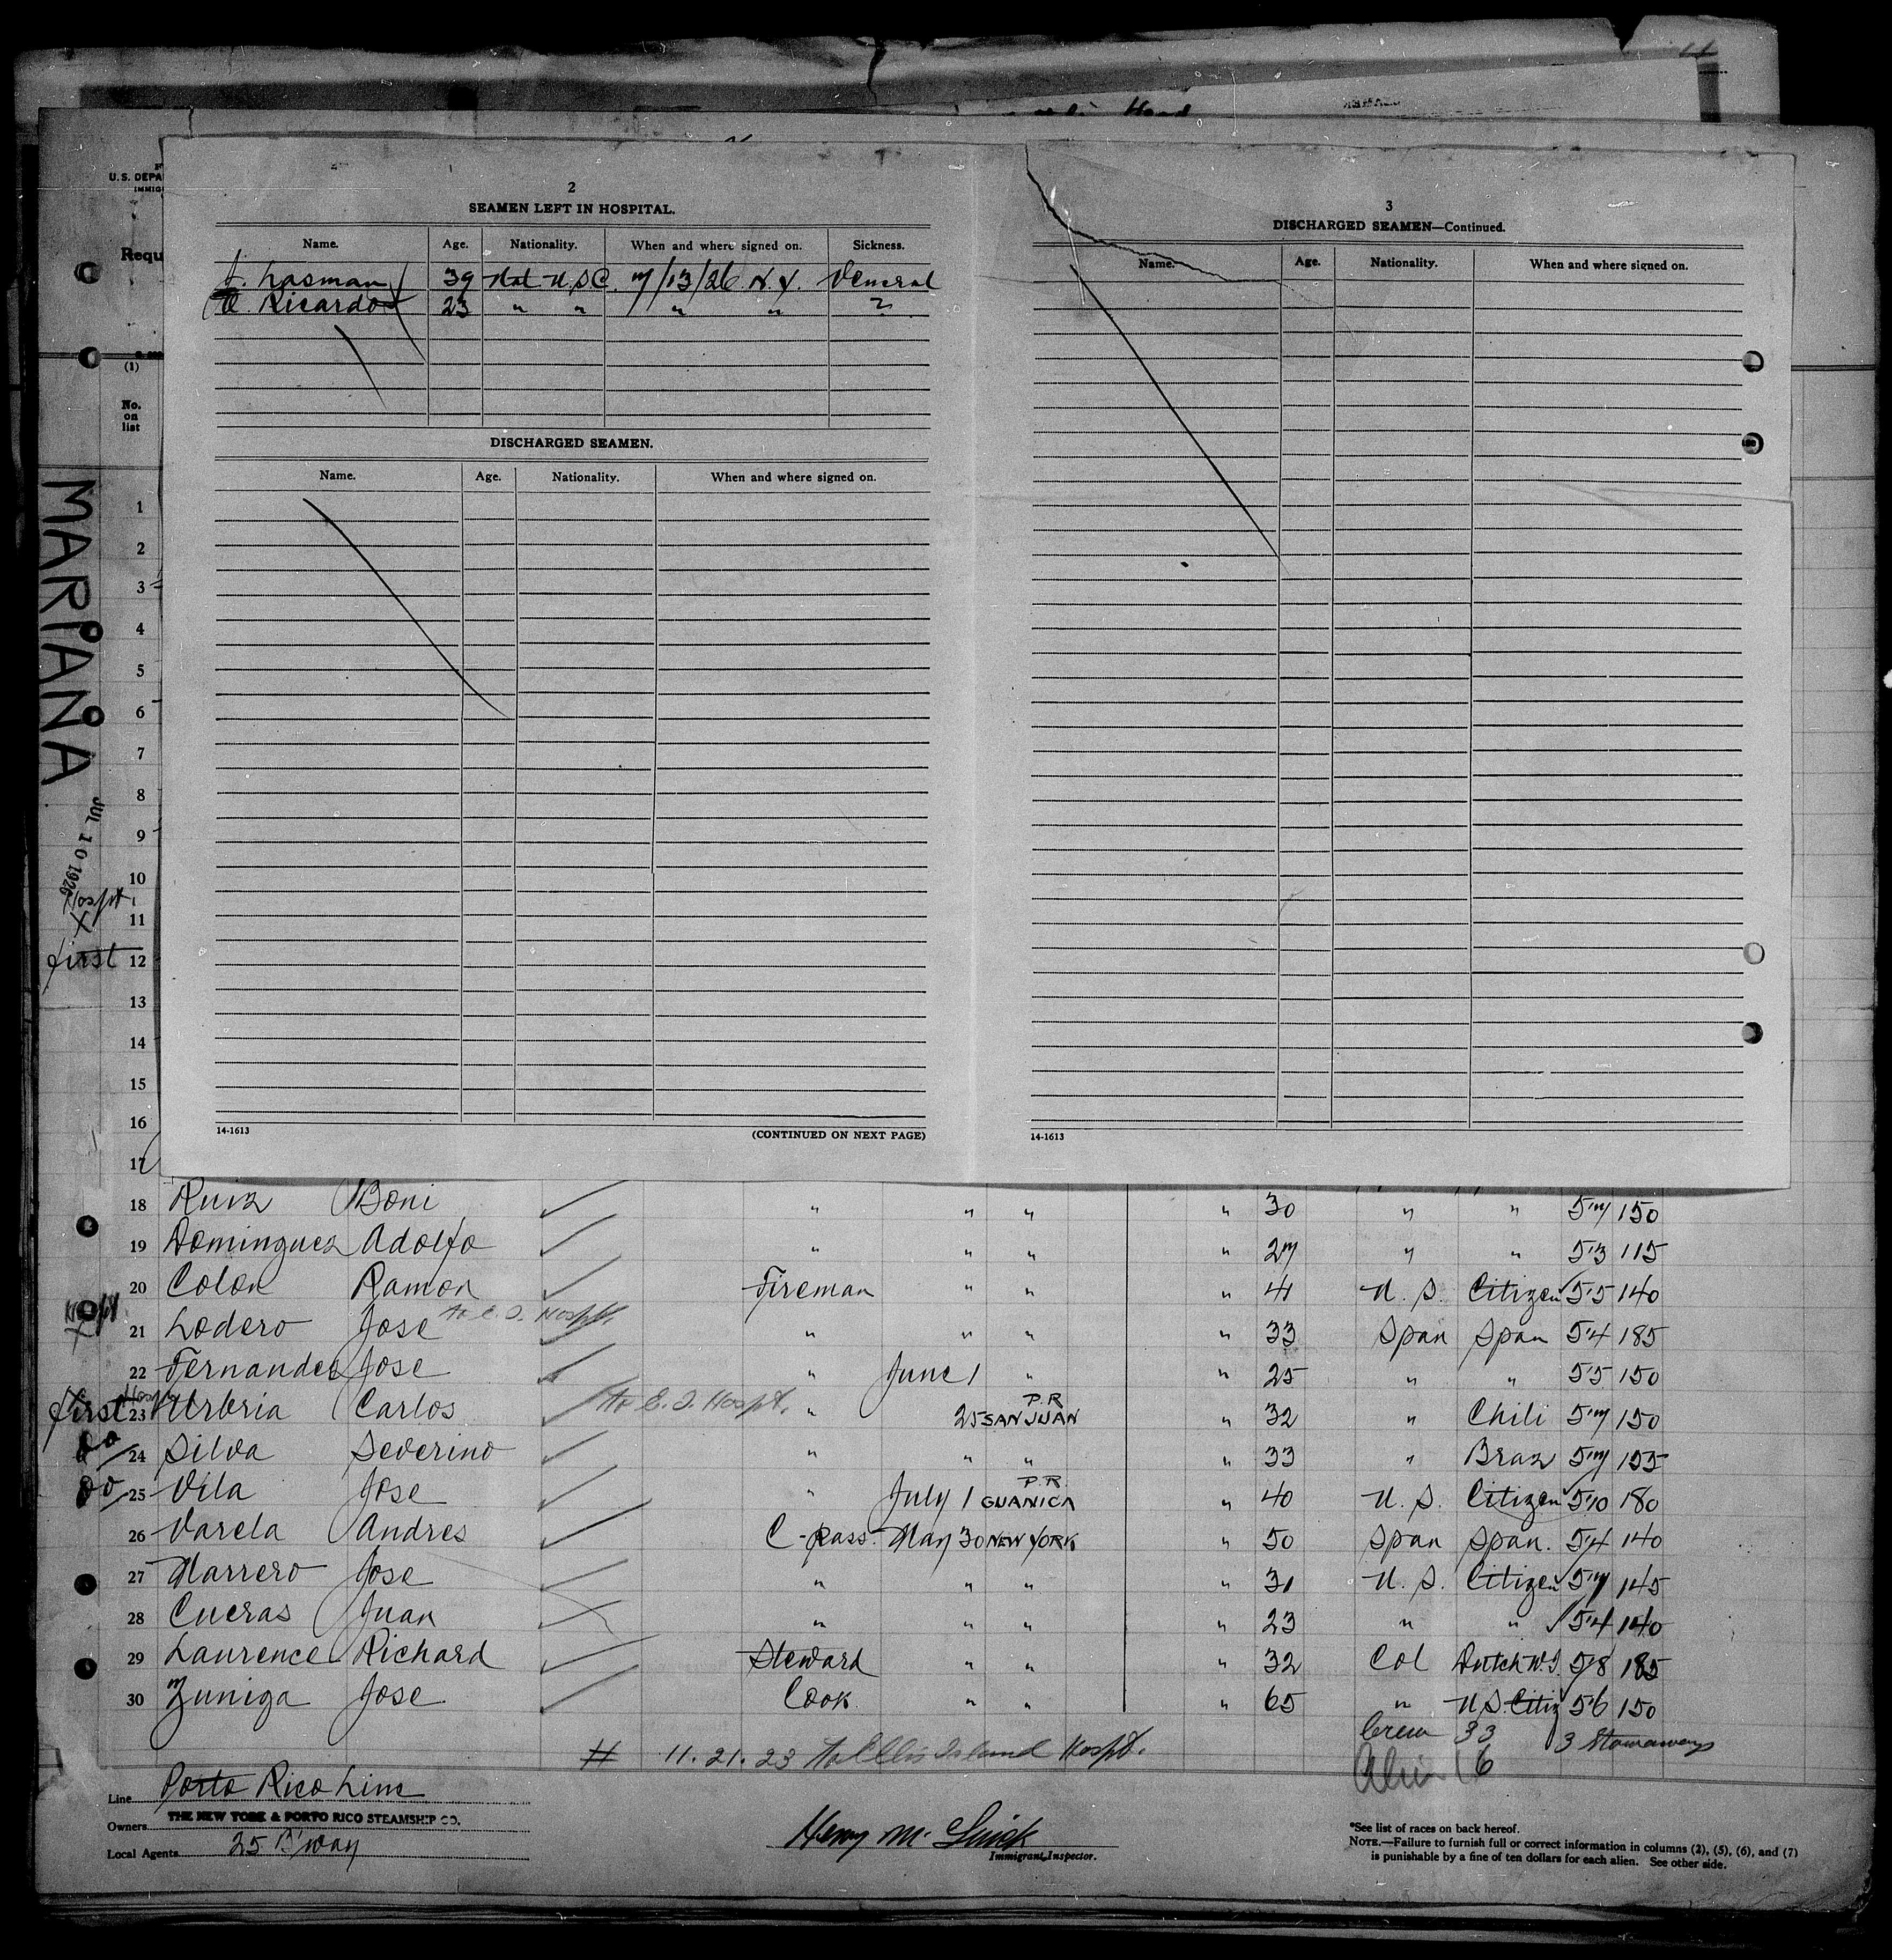 U.S. DEPA
IMMIG
Requ
(1)
No.
on
list
MARIANA
JUL 10 1926
2
SEAMEN LEFT IN HOSPITAL.
Name. Age. Nationality. When and where signed on. Sickness.
Lasman 39 Nat U.S.C. 7/13/26 N.Y. Veneral
Ricardo 23 " " " " ?
DISCHARGED SEAMEN.
Name. Age. Nationality. When and where signed on.
14-1613 (CONTINUED ON NEXT PAGE)
3
DISCHARGED SEAMEN—Continued.
Name. Age. Nationality. When and where signed on.
14-1613
1
2
3
4
5
6
7
8
9
10
Hospt.
11
X
first 12
13
14
15
16
17
18 Ruiz Boni " " " " 30 " " 5'7 150
19 Dominguez Adolfo " " " " 27 " " 5'3 115
20 Colon Ramon Fireman " " " 41 U. S. Citizen 5'5 140
Hospt X 21 Lodero Jose To E. I. Hospt. " " " " 33 Span Span 5'4 185
22 Fernandez Jose " June 1 " " 25 " " 5'5 150
first Hospt 23 Urbria Carlos To E. I. Hospt. " 25 SAN JUAN P.R " 32 " Chili 5'7 150
do 24 Silva Severino " " " " 33 " Braz 5'7 155
do 25 Vila Jose " July 1 GUANICA P.R. " 40 U. S. Citizen 5'10 180
26 Varela Andres C-pass. May 30 NEW YORK " 50 Span Span. 5'4 140
27 Marrero Jose " " " " 31 U. S. Citizen 5'7 145
28 Cueras Juan " " " " 23 " " 5'4 140
29 Laurence Richard Steward " " " 32 Col Dutch W.I. 5'8 185
30 Zuniga Jose Cook " " " 65 " U.S. Citiz 5'6 150
Crew 33 3 Stowaways
# 11. 21. 23 To Ellis Island Hospt. Alien 16
Line Porto Rico Line
Owners THE NEW YORK & PORTO RICO STEAMSHIP CO.
Local Agents 25 B'way
Henry M.
Immigrant Inspector.
*See list of races on back hereof.
NOTE.—Failure to furnish full or correct information in columns (2), (5), (6), and (7)
is punishable by a fine of ten dollars for each alien. See other side.